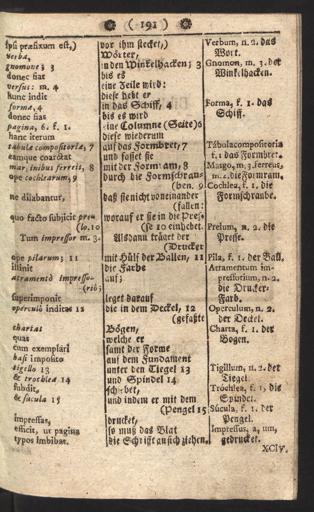 ( 191 )
ipsi præfixum est,)
verba,
gnomone; 3
donec fiat
versus: m. 4
hunc indit
forma, 4
donec fiat
pagina, 6. f. 1.
hanc iterum
tabulæ compositoriæ, 7
eamque coarctat
marginibus ferreis, 8
ope cochlearum, 9
ne dilabantur,
quo facto subjicit prelo. 10
Tum impressor m. 3.
ope pilarum; 11
illinit
atramento impressorio;
superimponit
operculo inditas 12
chartas
quas
cum exemplari
basi imposito
tigello 13
& trochlea 14
subdit,
& sucula 15
impressas,
efficit, ut pagina
typos imbibat.
vor ihm stecket,)
Wörter,
in den Winkelhacken; 3
bis es
eine Zeile wird:
diese hebt er
in das Schiff, 4
bis es wird
eine Columne (Seite) 6
diese wiederum
auf das Formbret, 7
und fasset sie
mit der Formram, 8
durch die Formschrauben, 9
daß sie nicht voneinander
fallen:
worauf er sie in die Presse 10 einhebet.
Alsdann träget der
Drucker
mit Hülf der Ballen, 11
die Farbe
auf;
leget darauf
die in dem Deckel, 12
gefaßte
Bögen,
welche er
samt der Forme
auf dem Fundament
unter den Tiegel 13
und Spindel 14
schiebet,
und indem er mit dem
Pengel 15
drucket,
so muß das Blat
die Schrifft an sich ziehen.
Verbum, n. 2. das
Wort.
Gnomon, m. 3. der
Winkelhacken.
Forma, f. 1. das
Schiff.
Tabula compositoria
f. 1 das Formbret.
Margo, m. 3. ferreus,
m. 2. die Formram.
Cochlea, f. 1. die
Formschraube.
Prelum, n. 2. die
Presse.
Pila, f. 1. der Ball.
Atramentum impressorium, n. 2.
die Drucker-
Farb.
Operculum, n. 2.
der Deckel.
Charta, f. 1. der
Bogen.
Tigillum, n. 2. der
Tiegel.
Trochlea, f. 1. die
Spindel.
Sucula, f. 1. der
Pengel.
Impressus, a, um,
gedrucket.
XCIV.